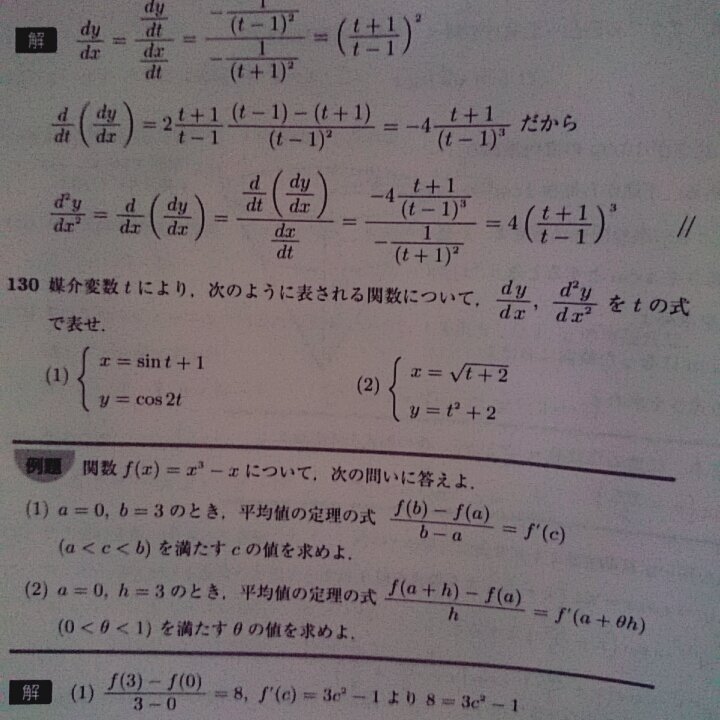 解 dy/dx = (dy/dt)/(dx/dt) = (-1/(t-1)²)/(-1/(t+1)²) = ((t+1)/(t-1))²
d/dt (dy/dx) = 2 (t+1)/(t-1) ((t-1)-(t+1))/(t-1)² = -4 (t+1)/(t-1)³ だから
d²y/dx² = d/dx (dy/dx) = (d/dt (dy/dx))/(dx/dt) = (-4 (t+1)/(t-1)³)/(-1/(t+1)²) = 4 ((t+1)/(t-1))³ //
130 媒介変数 t により，次のように表される関数について，dy/dx，d²y/dx² を t の式
で表せ．
(1) { x = sin t + 1 (2) { x = √(t+2)
y = cos 2t y = t² + 2
例題 関数 f(x) = x³ - x について，次の問いに答えよ．
(1) a = 0, b = 3 のとき，平均値の定理の式 (f(b) - f(a))/(b - a) = f'(c)
(a < c < b) を満たす c の値を求めよ．
(2) a = 0, h = 3 のとき，平均値の定理の式 (f(a+h) - f(a))/h = f'(a + θh)
(0 < θ < 1) を満たす θ の値を求めよ．
解 (1) (f(3) - f(0))/(3 - 0) = 8, f'(c) = 3c² - 1 より 8 = 3c² - 1